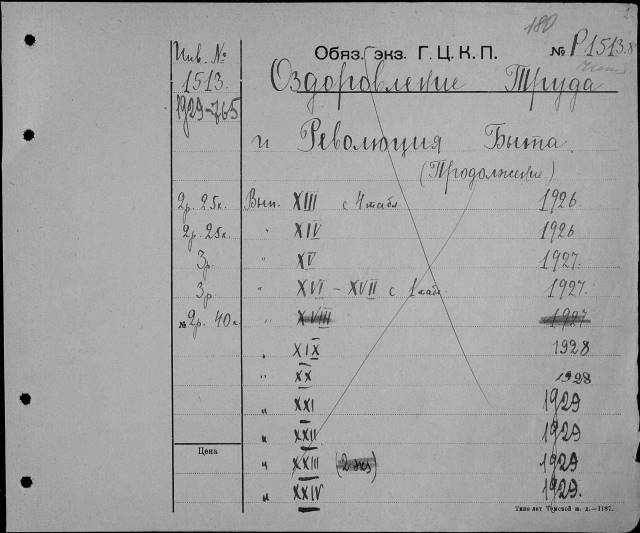 180
Инв. № Обяз. экз. Г. Ц. К. П. № Р1513.8
1513. Оздоровление Труда
1929-765
и Революция Быта.
(Продолжение)
2р. 25к. Вып. XIII с 4 табл. 1926
2р. 25к. " XIV 1926
3р. " XV 1927.
3р. " XVI - XVII с 1 табл. 1927.
№ 2р. 40к. " XVIII 1927
" XIX 1928
" XX 1928
" XXI 1929
" XXII 1929
Цена " XXIII (2 экз) 1929
" XXIV 1929.
Типо-лит Томской ж. д.-1187.